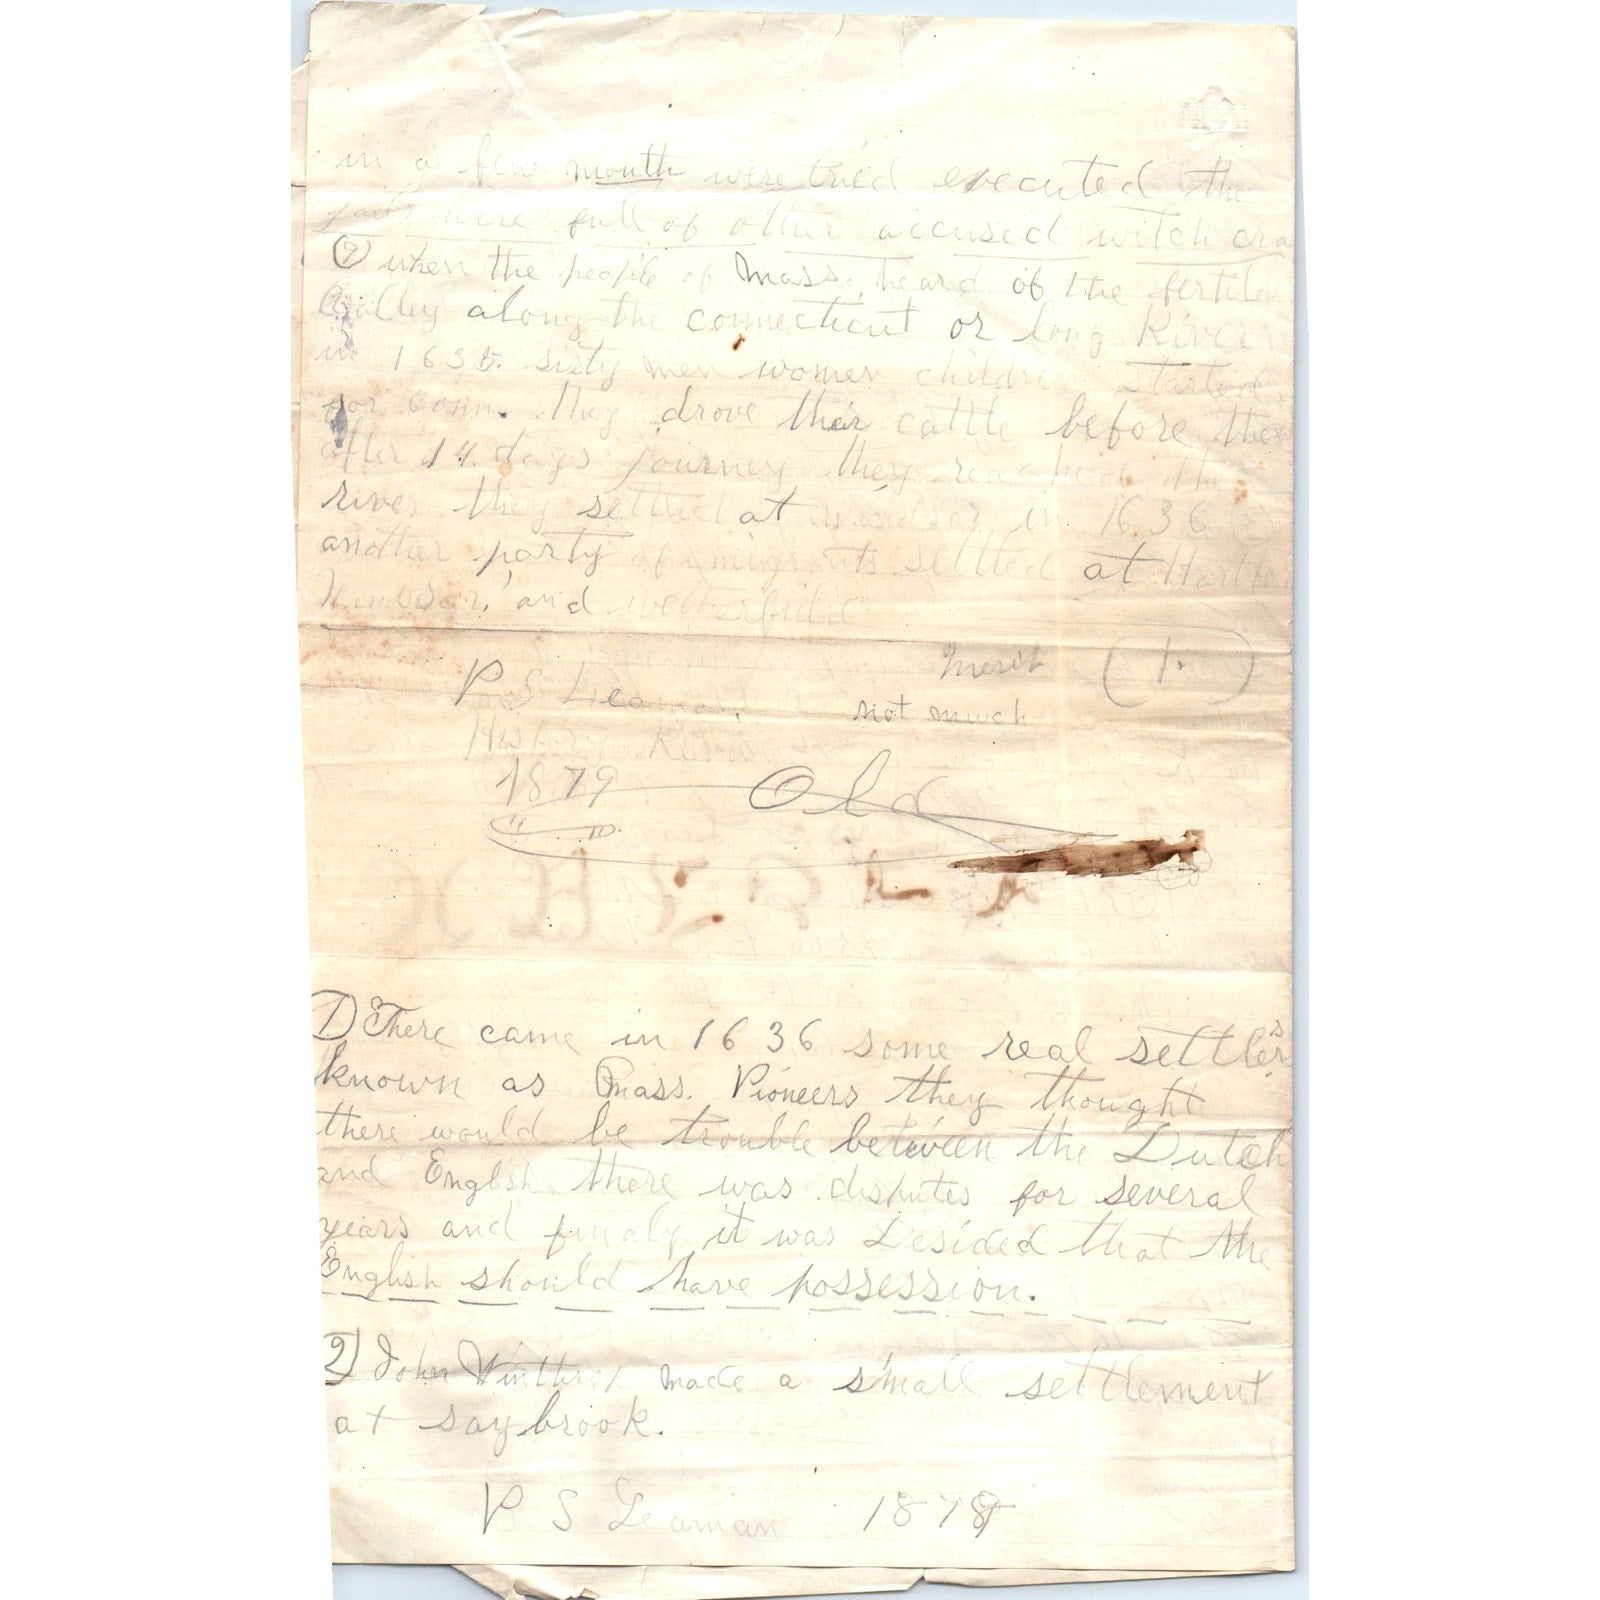 in a few month were tried executed the
jails were full of other accused witch cra
⑨ when the people of Mass. heard of the fertile
Valley along the connecticut or long River
in 1635. sixty men women children started
for Conn. they drove their cattle before them
after 14. days journey they reached the
river they settled at windsor in 1636
another party of emigrants settled at Hartfor
Windsor, and wetherfield
P S Leaman.
Merit (1.)
not much
History
1879
Old
1) There came in 1636 some real settlers
known as Mass. Pioneers they thought
there would be trouble between the Dutch
and English there was disputes for several
years and finaly it was Desided that the
English should have possession.
2) John Winthrop made a small settlement
at saybrook.
P S Leaman 1879